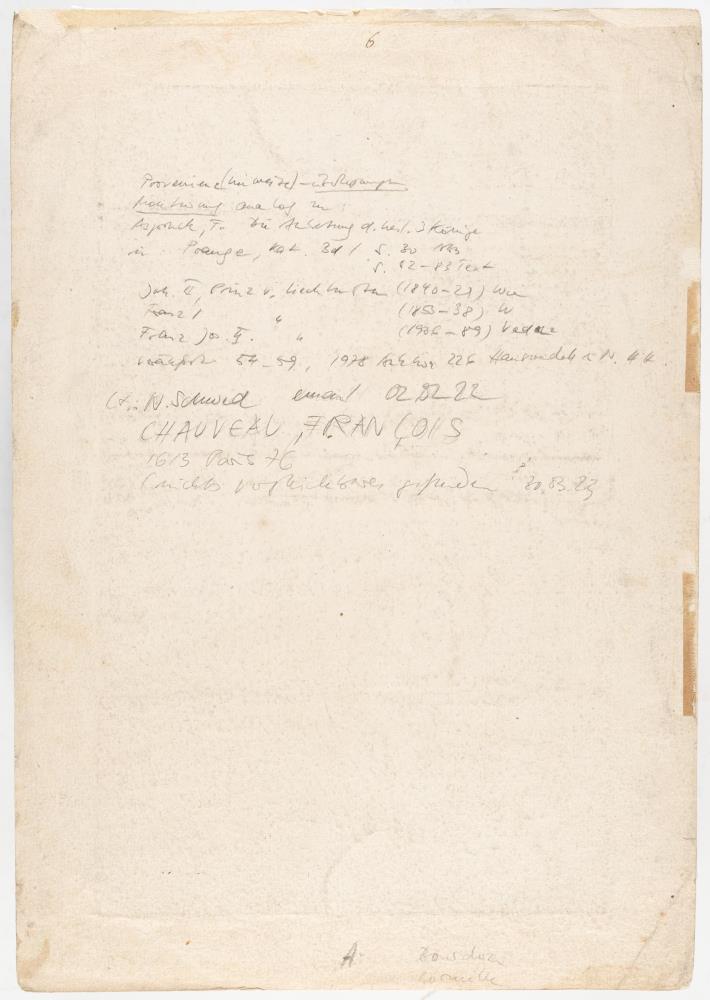 6
Provenienz(hinweise)
Montierung analog zu:
F. Die Anbetung d. heil. 3 Könige
in Prange, Kat. Bd 1 S. 30
S. 82-83 Text
Joh. II, Prinz v. Liechtenstein (1840-29) Wien
Franz I " (1853-38) W
Franz Jos. II. " (1906-89) Vaduz
54-59, 1978 Auktion 226 Hauswedell & N. HH.
N. Schwed email 02.02.22
CHAUVEAU, FRANÇOIS
1613 Paris 76
(nichts vergleichbares gefunden 20.03.23
A.